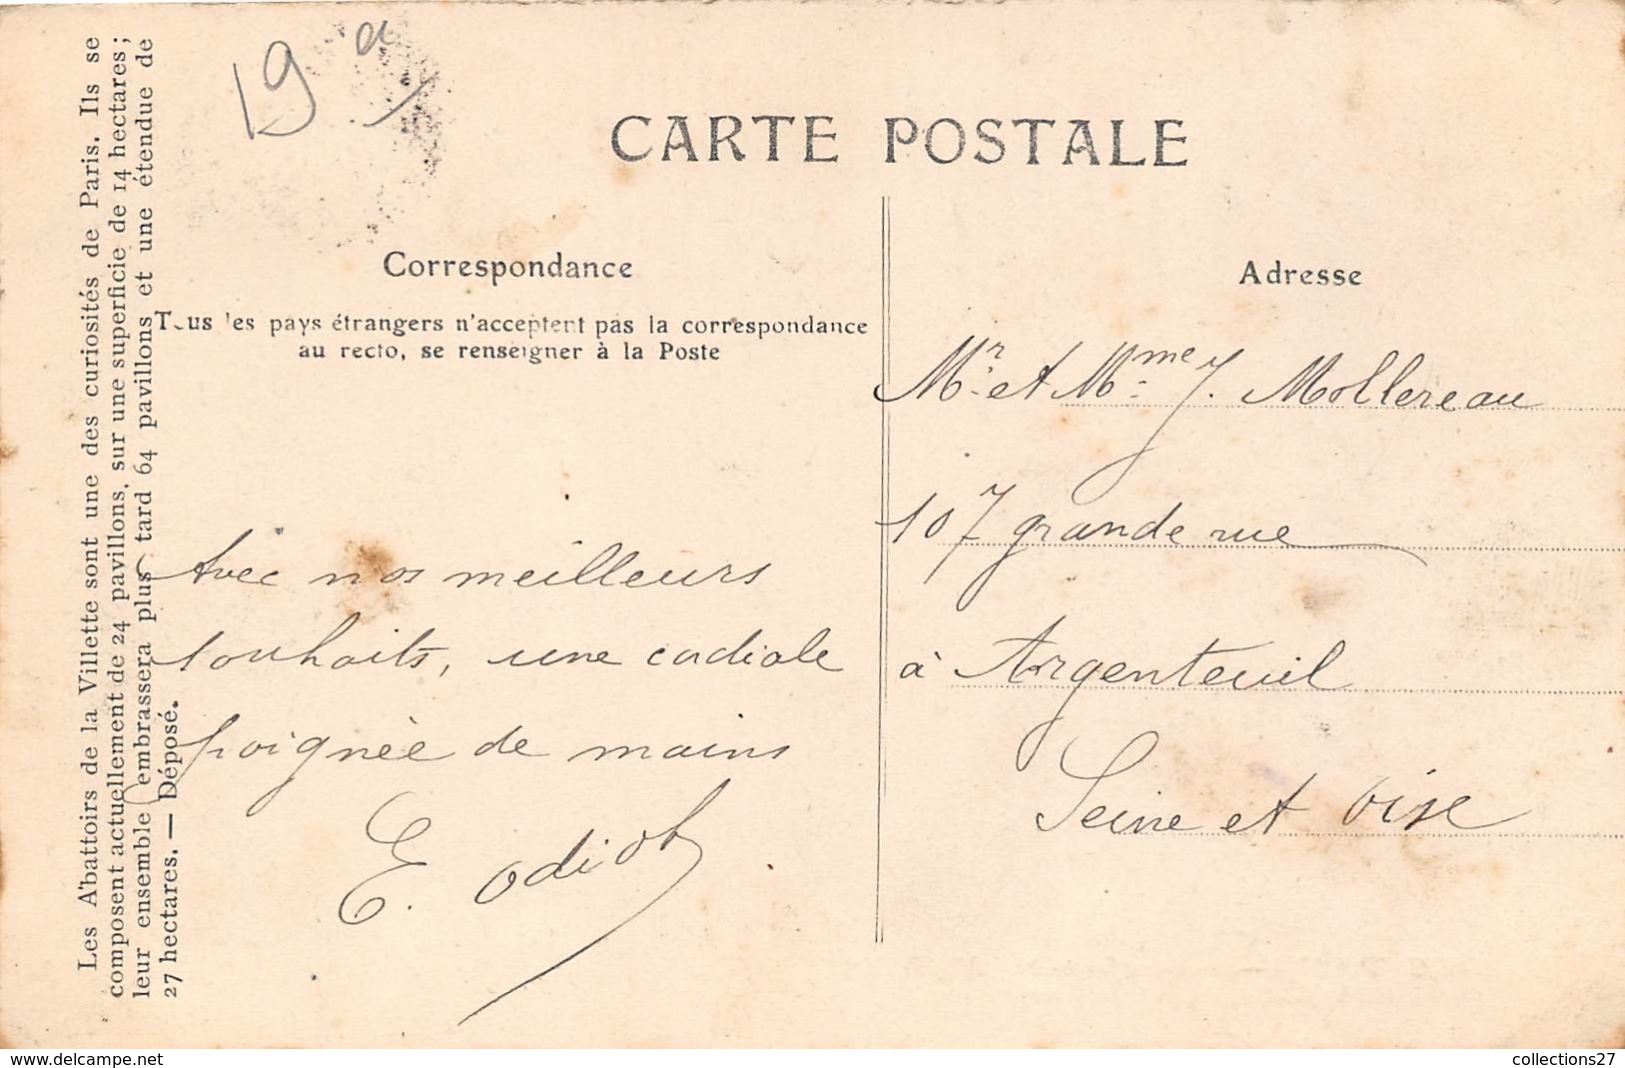 19 e
CARTE POSTALE
Les Abattoirs de la Villette sont une des curiosités de Paris. Ils se
composent actuellement de 24 pavillons, sur une superficie de 14 hectares ;
leur ensemble embrassera plus tard 64 pavillons et une étendue de
27 hectares. — Déposé.
Correspondance
Tous les pays étrangers n'acceptent pas la correspondance
au recto, se renseigner à la Poste
Avec nos meilleurs
souhaits, une cordiale
poignée de mains
E. Odiot
Adresse
Mr. et Mme J. Mollereau
107 grande rue
à Argenteuil
Seine et Oise
www.delcampe.net
collections27